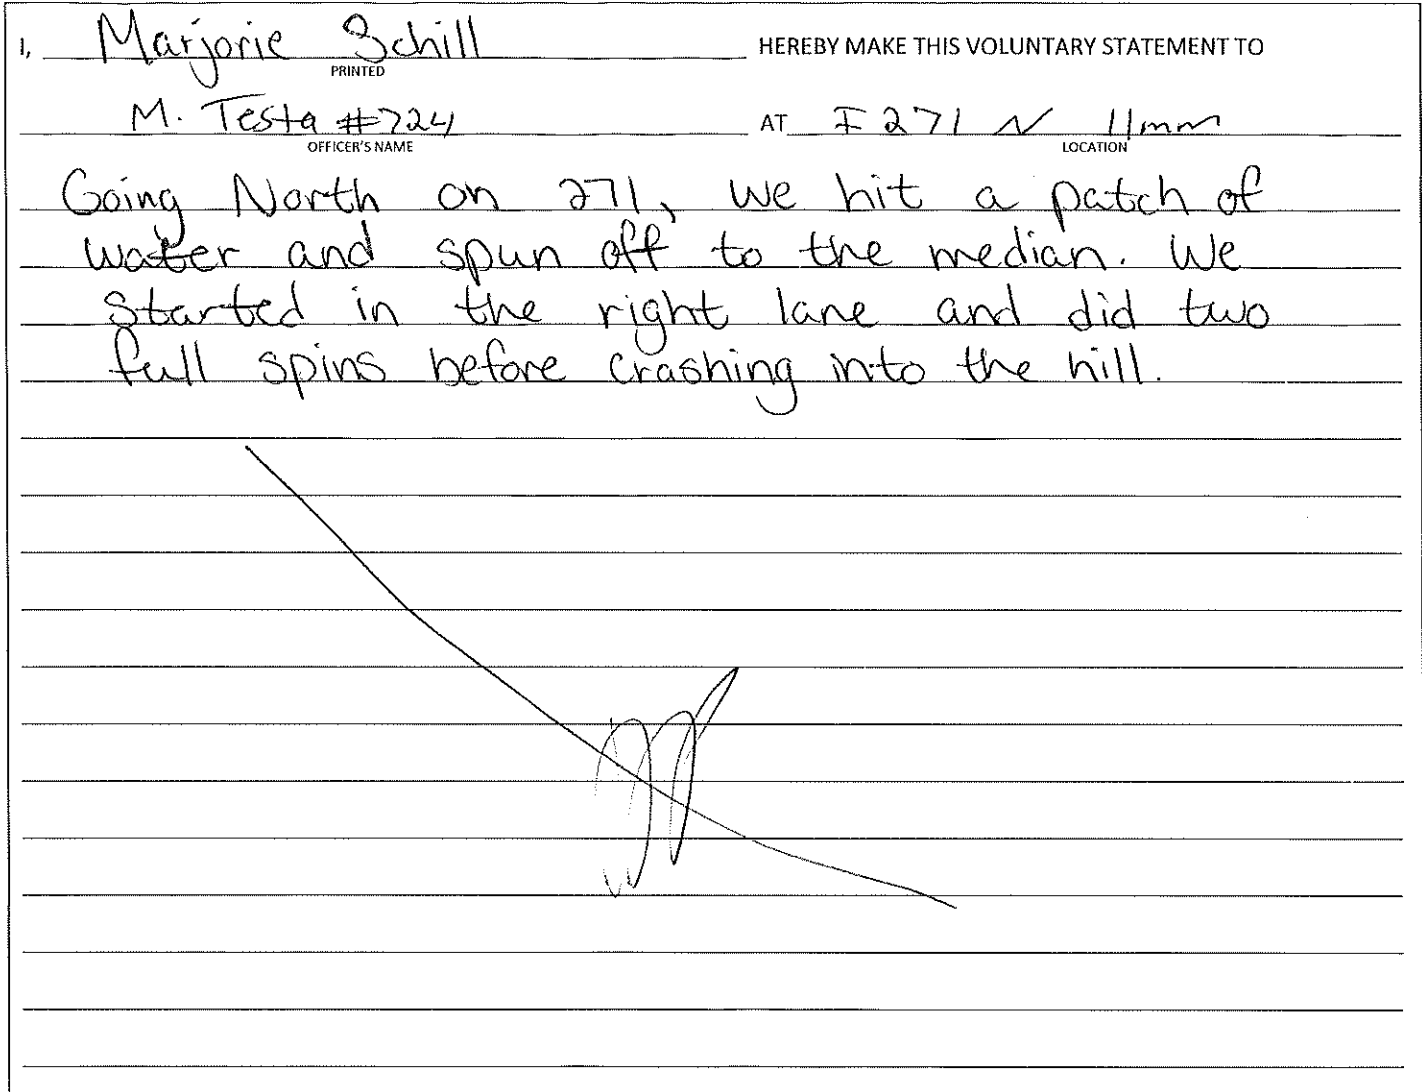 I, Marjorie Schill HEREBY MAKE THIS VOLUNTARY STATEMENT TO
PRINTED
M. Testa #724 AT I 271 N 11mm
OFFICER'S NAME LOCATION
Going North on 271, we hit a patch of
water and spun off to the median. We
started in the right lane and did two
full spins before crashing into the hill.